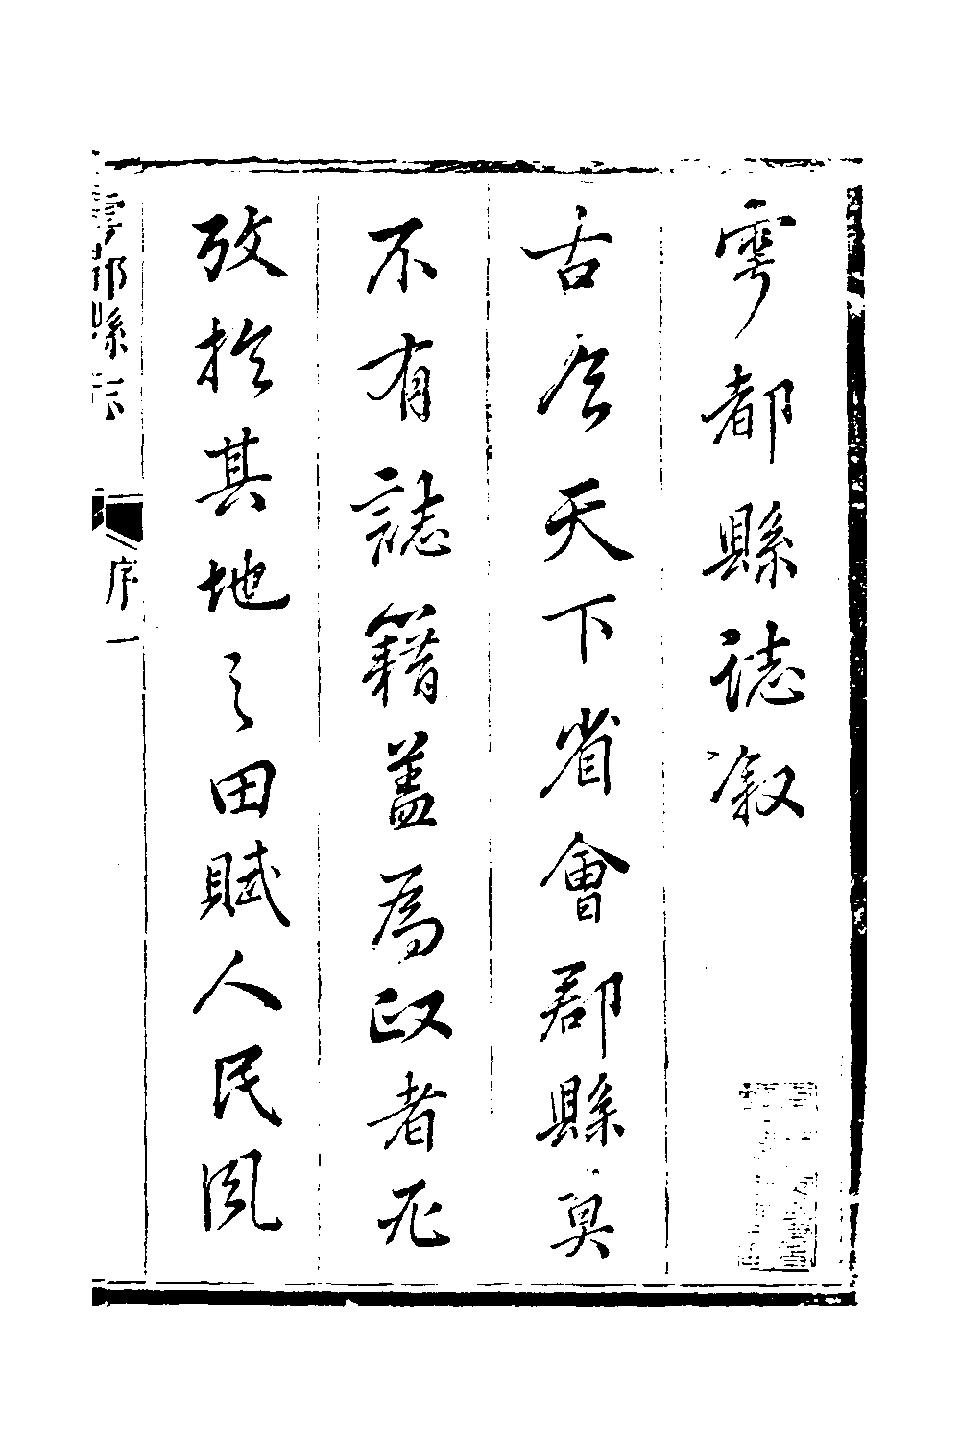 雩都縣誌叙
古今天下省會郡縣莫
不有誌籍盖為政者无
攷於其地之田賦人民風
雩都縣志 序 一